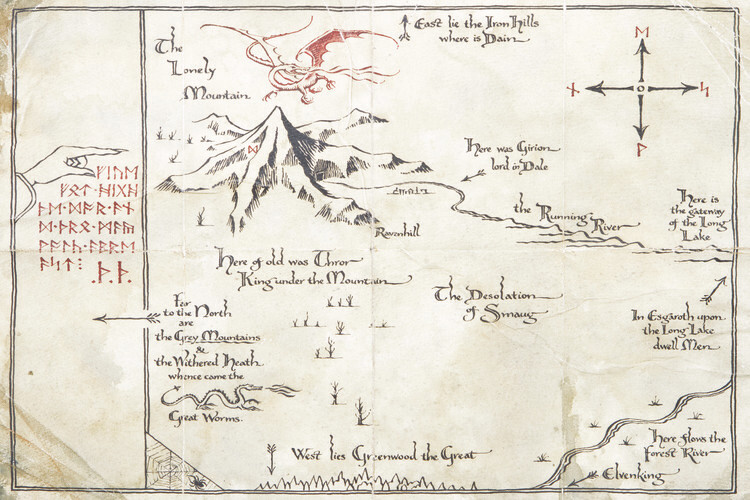 East lie the Iron Hills
where is Dain
The
Lonely
Mountain
ᛖ
ᚾ
ᛋ
ᚹ
ᛞ
Here was Girion
lord in Dale
ᚠᛁᚢᛖ
ᚻᛁᚷᚻ
ᚪᛋᛏ
.ᚦ.ᚦ.
the Running River
Here is
the gateway
of the Long
Lake
Ravenhill
Here of old was Thror
King under the Mountain
The Desolation
of Smaug
Far
to the North
are
the Grey Mountains
&
the Withered Heath
whence came the
Great Worms.
In Esgaroth upon
the Long Lake
dwell Men
Here flows the
Forest River
West lies Greenwood the Great
Elvenking